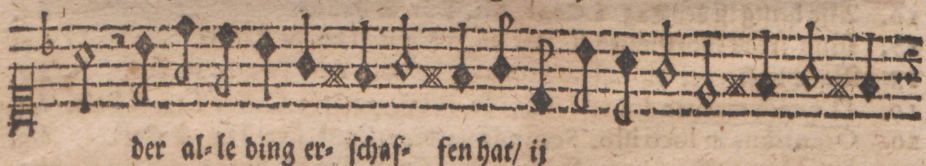 der al-le ding er- schaf- fen hat/ ij